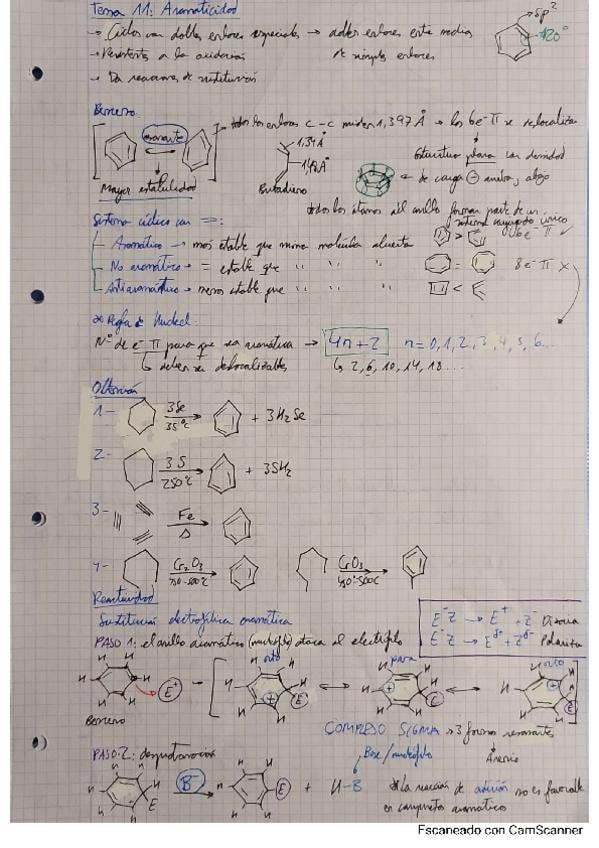 Tema 11: Aromaticidad
→ Ciclos con dobles enlaces especiales → adoptan enlaces entre medios
de simples enlaces
sp²
120°
→ Resistentes a la oxidación
→ Dan reacciones de sustitución
Benceno:
resonante
Mayor estabilidad
→ todos los enlaces C-C miden 1,397 Å → los 6e⁻ π se deslocalizan
1,34 Å
1,47 Å
Butadieno
Estructura plana con densidad
de carga ⊖ arriba y abajo
todos los átomos del anillo forman parte de un
sistema conjugado único
Sistema cíclico con =:
Aromático → más estable que misma molécula abierta
> 6e⁻ π ✓
No aromático → = estable que " " "
= 8e⁻ π x
Antiaromático → menos estable que " " "
<
* Regla de Huckel:
Nº de e⁻ π para que sea aromático → 4n+2 n=0,1,2,3,4,5,6...
↳ deben ser deslocalizables
↳ 2,6,10,14,18...
Obtención
1- 3Se 35°C + 3H₂Se
2- 3S 250°C + 3SH₂
3- Fe Δ
4- Cr₂O₃ 450-500°C CrO₃ 450-500°C
Reactividad
Sustitución electrofílica aromática
E⁻Z → E⁺ + Z⁻ Disocia
E⁻Z → E^δ⁺ + Z^δ⁻ Polariza
PASO 1: el anillo aromático (nucleófilo) ataca al electrófilo
H H H H H E⁺
orto para orto
Benceno
COMPLEJO SIGMA → 3 formas resonantes
Base/nucleófilo
Arenio
PASO 2: desprotonación
B⁻ E + H-B
* La reacción de adición no es favorable
en compuestos aromáticos
Escaneado con CamScanner